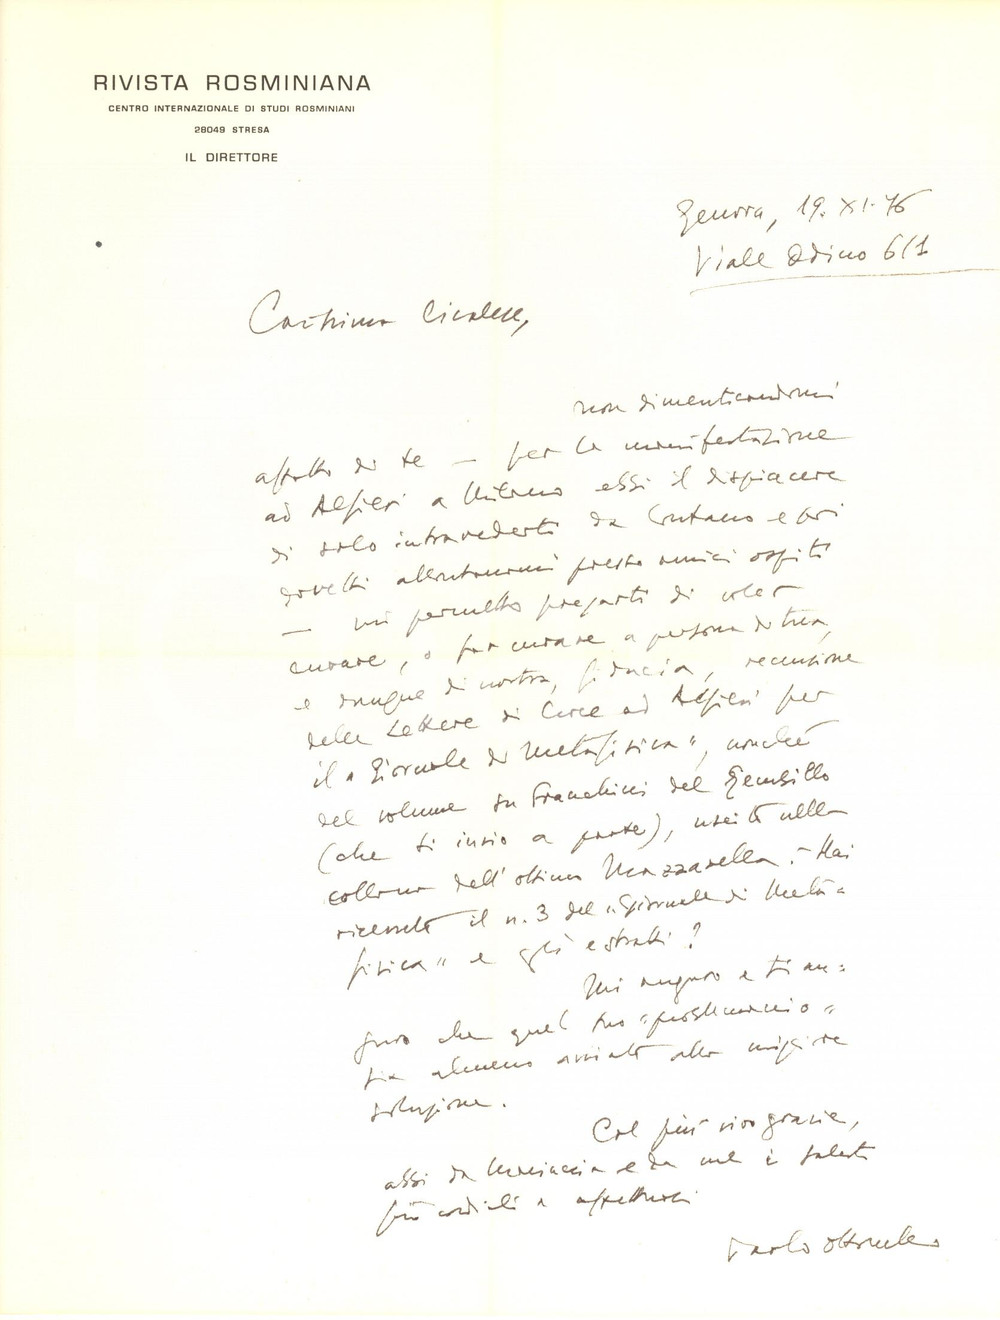 RIVISTA ROSMINIANA
CENTRO INTERNAZIONALE DI STUDI ROSMINIANI
28049 STRESA
IL DIRETTORE
Genova, 19. XI. 76
Viale Odino 6/1
Carissimo Cicalese,
non dimenticandomi
affatto di te — per la manifestazione
ad Alfieri a Milano ebbi il dispiacere
di solo intravederti da lontano e poi
dovetti allontanarmi presto amici ospiti
— mi permetto pregarti di voler
curare, o far curare a persona di tua,
e dunque di nostra, fiducia, recensione
delle Lettere di Croce ad Alfieri per
il "Giornale di Metafisica", nonché
del volume su Franchini del Gembillo
(che ti invio a parte), uscito nella
collana dell'ottimo Mazzarella. - Hai
ricevuto il n. 3 del "Giornale di Meta=
fisica" e gli estratti?
Mi auguro e ti au=
guro che quel tuo
sia almeno avviato alla migliore
soluzione.
Col più vivo grazie,
abbi da e da me i saluti
più cordiali e affettuosi
Paolo Ottonello